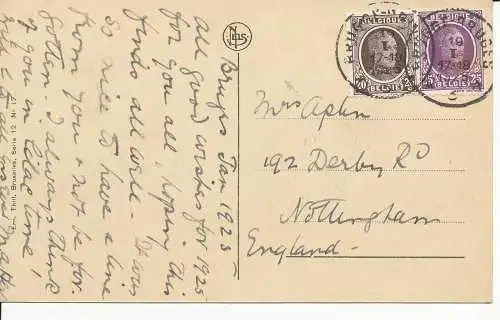 Bruges Jan 1925
all good wishes for 1925
for you all, hoping this
finds all well - It was
so nice to have a line
from you & not be for
gotten. I always think
of you in Class time!
Ern. Thill, Bruxelles, Série 12 No 17
NELS
BRUGGE
BRUGES
19
I
17-18
BELGIQUE
BELGIË
20
25
Mrs Apten
192 Derby Rd
Nottingham
England